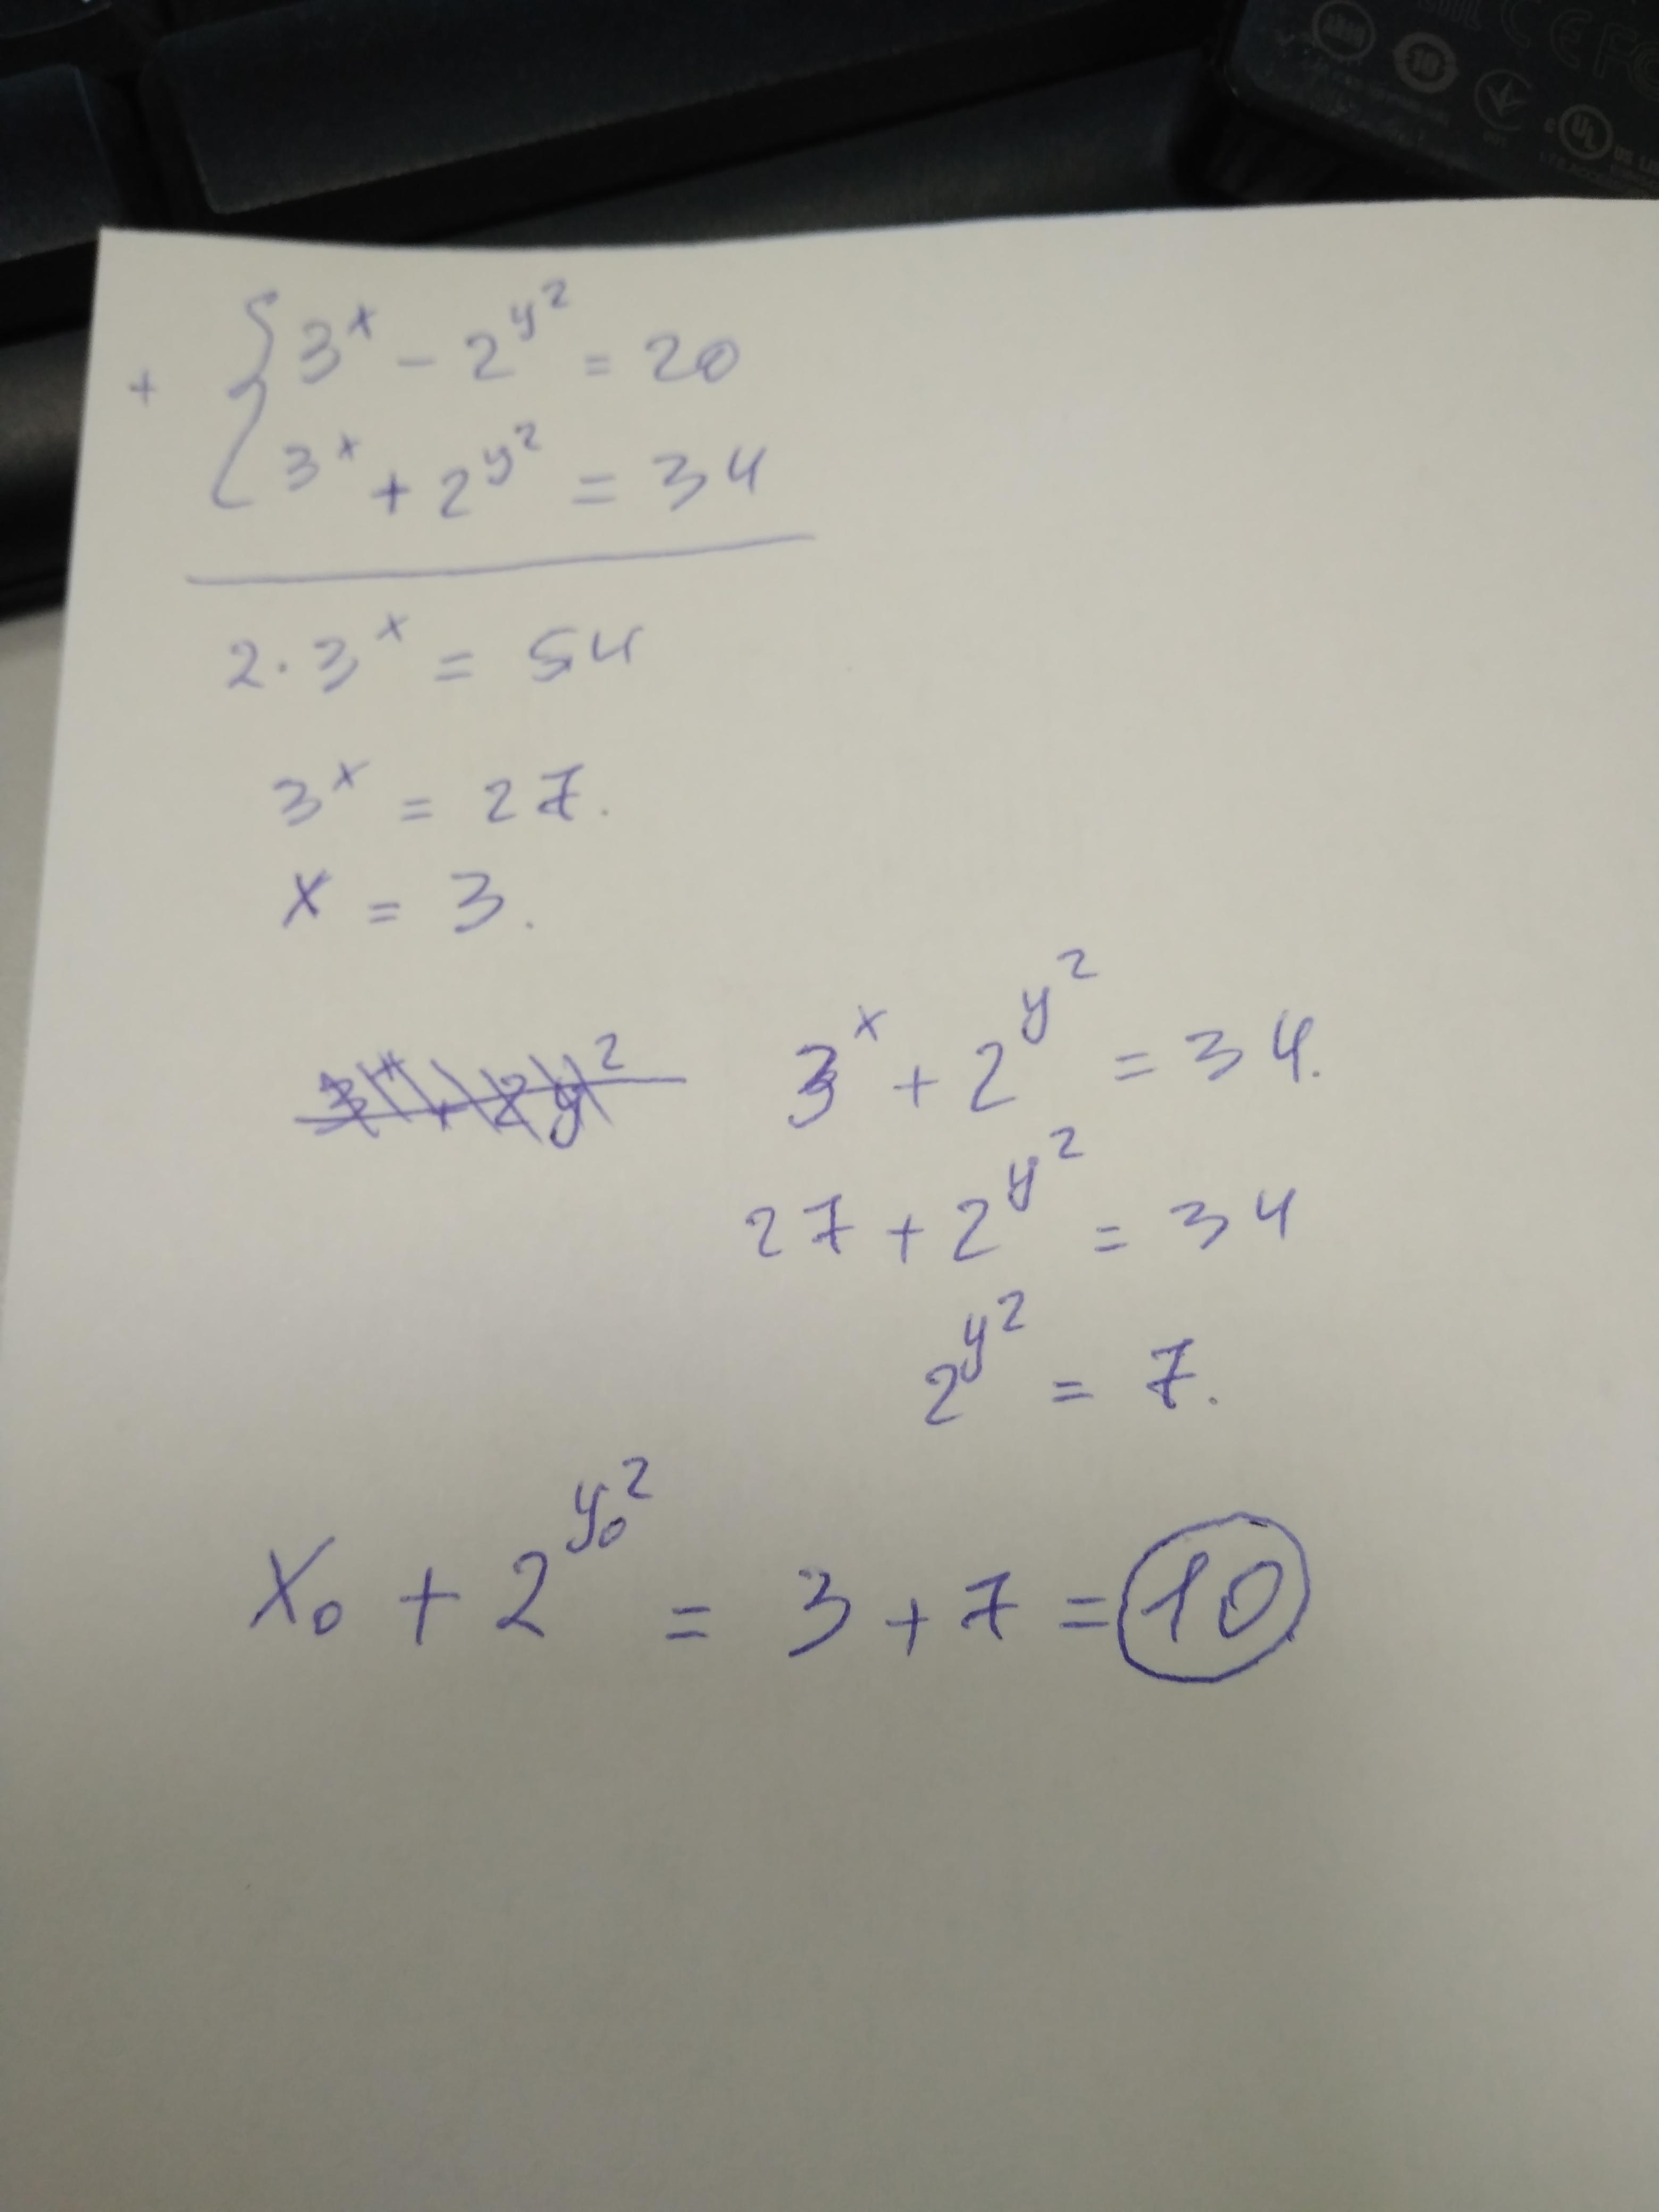 CE FC
10
c UL US LISTED
+ { 3^x - 2^{y^2} = 20
3^x + 2^{y^2} = 34
2 · 3^x = 54
3^x = 27.
x = 3.
3^x + 2^{y^2} = 34.
27 + 2^{y^2} = 34
2^{y^2} = 7.
x_0 + 2^{y_0^2} = 3 + 7 = 10